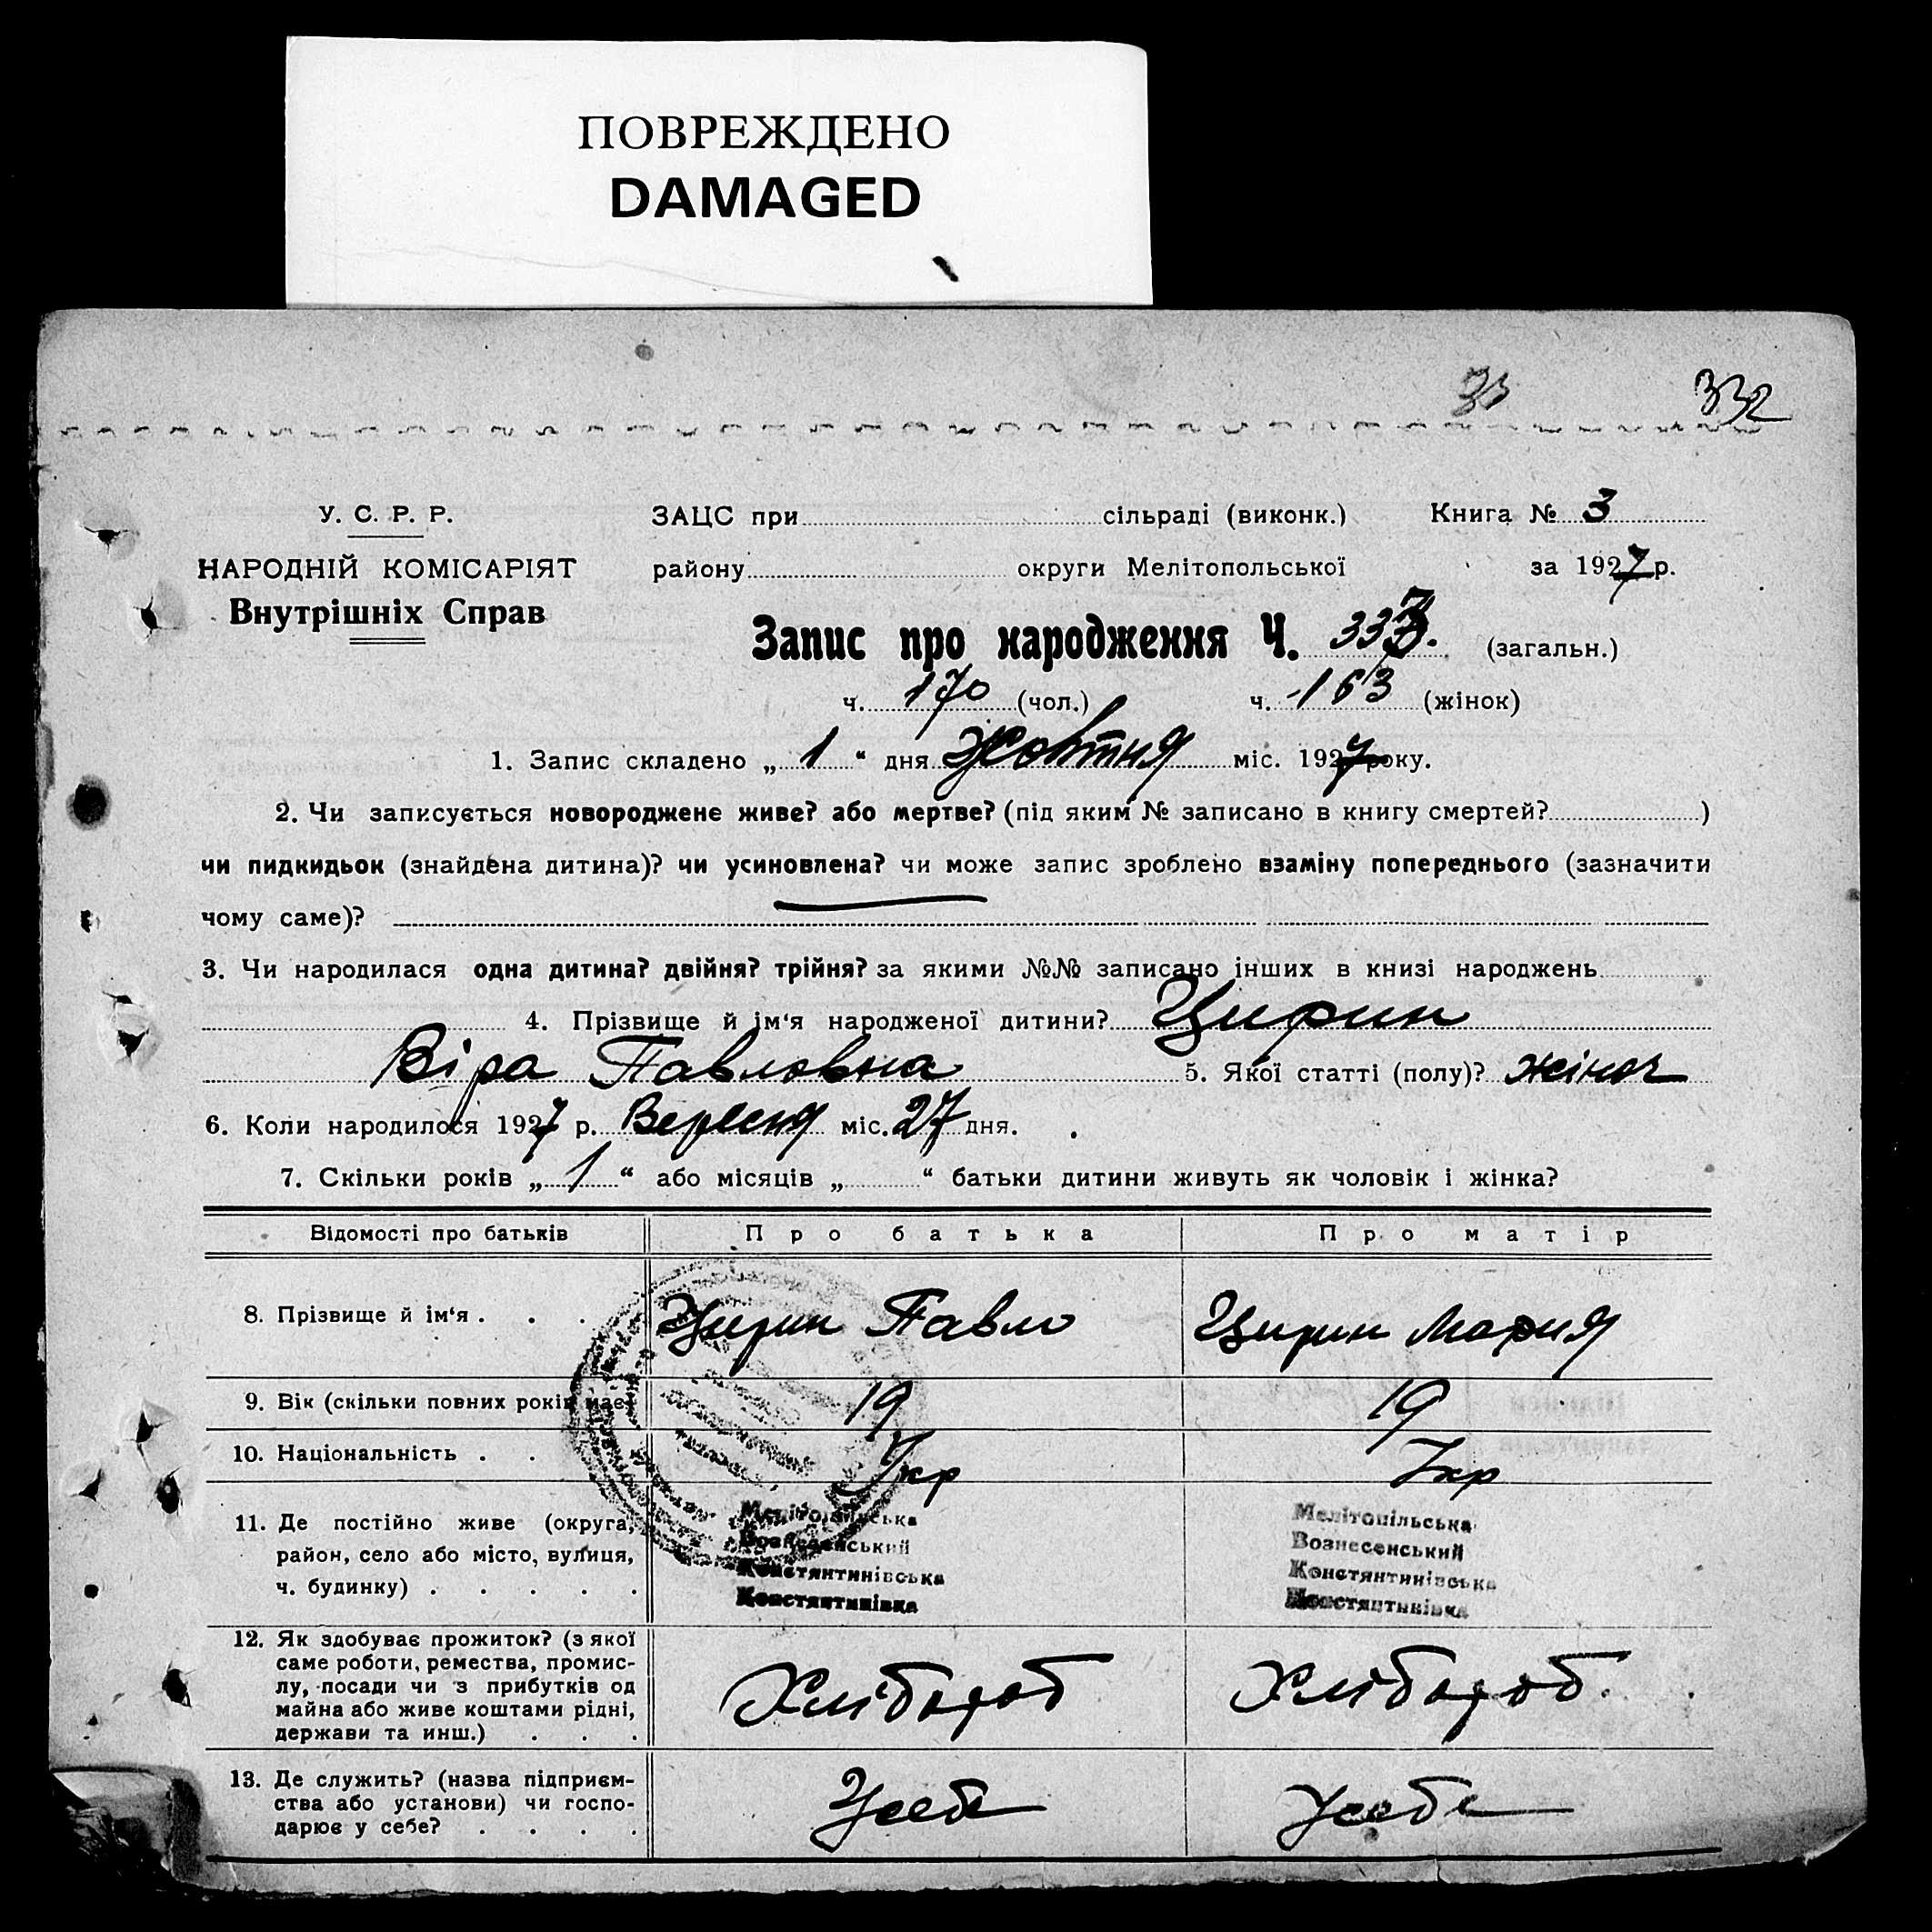 ПОВРЕЖДЕНО
DAMAGED
332
У. С. Р. Р.
ЗАЦС при сільраді (виконк.) Книга № 3
НАРОДНІЙ КОМІСАРІЯТ
району округи Мелітопольської за 1927 р.
Внутрішніх Справ
Запис про народження Ч. (загальн.)
ч. 170 (чол.) ч. 163 (жінок)
1. Запис складено „ 1 “ дня Жовтня міс. 1927 року.
2. Чи записується новороджене живе? або мертве? (під яким № записано в книгу смертей? )
чи пидкидьок (знайдена дитина)? чи усиновлена? чи може запис зроблено взаміну попереднього (зазначити
чому саме)?
3. Чи народилася одна дитина? двійня? трійня? за якими №№ записано інших в книзі народжень
4. Прізвище й ім‘я народженої дитини? Цирин
Віра Павловна 5. Якої статті (полу)? жіноч
6. Коли народилося 1927 р. Вересня міс. 27 дня.
7. Скільки років „ 1 “ або місяців „ “ батьки дитини живуть як чоловік і жінка?
Відомості про батьків Про батька Про матір
8. Прізвище й ім‘я . . . Цирин Павло Цирин Мария
9. Вік (скільки повних років має) 19 19
10. Національність . . Укр Укр
11. Де постійно живе (округа, район, село або місто, вулиця, ч. будинку) . . . . .
Мелітопільська Мелітопільська
Вознесенський Вознесенський
Констянтинівська Констянтинівська
Констянтинівка Констянтинівка
12. Як здобуває прожиток? (з якої
саме роботи, ремества, промис-
лу, посади чи з прибутків од
майна або живе коштами рідні,
держави та инш.) . . .
Хлібороб Хлібороб
13. Де служить? (назва підприєм-
ства або установи) чи госпо-
дарює у себе? . . . .
Усебе Усебе